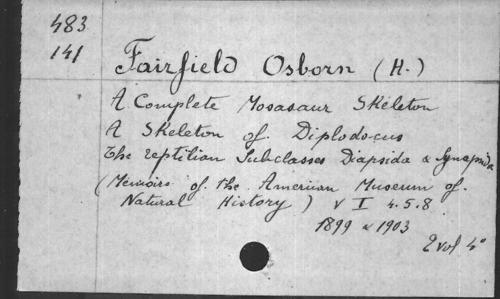 483
141
Fairfield Osborn (H.)
A Complete Mosasaur Skeleton
A Skeleton of Diplodocus
The reptilian Subclasses Diapsida & Synapsida
(Memoirs of the American Museum of
Natural History) v I 4.5.8
1899 & 1903
2 vol 4°